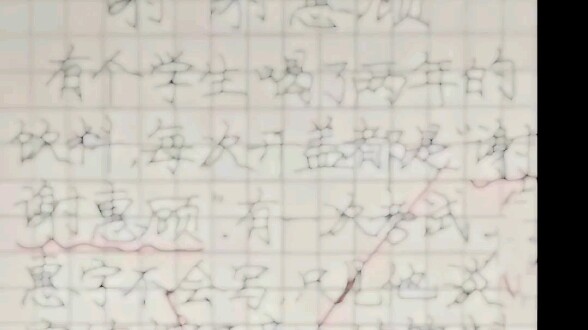 谢谢惠顾
有个学生喝了两年的
饮料,每次开盖都是“谢
谢惠顾”有一次考试
惠字不会写,只见他淡